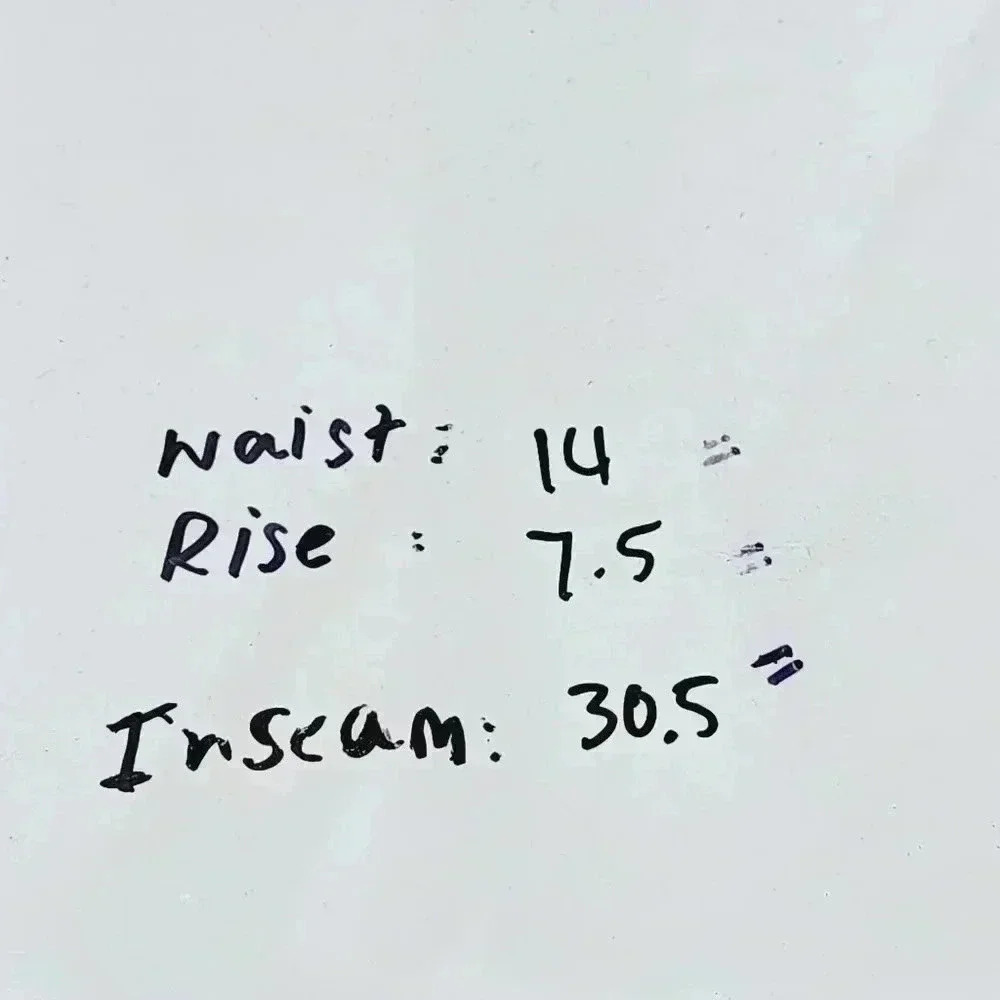 Waist: 14 "
Rise : 7.5 "
Inseam: 30.5 "